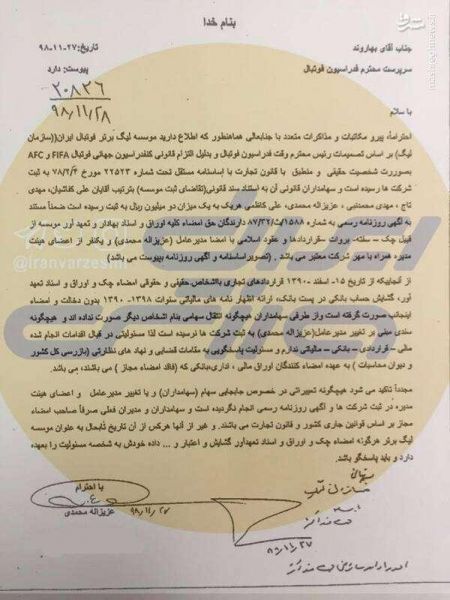 بنام خدا
تاریخ:۲۷-۱۱-۹۸
جناب آقای بهاروند
پیوست: دارد
سرپرست محترم فدراسیون فوتبال
۲۰۸۲۶
۹۸/۱۱/۲۸
با سلام
احتراماً، پیرو مکاتبات و مذاکرات متعدد با جنابعالی هماهنطور که اطلاع دارید موسسه لیگ برتر فوتبال ایران((سازمان
لیگ) بر اساس تصمیمات رئیس محترم وقت فدراسیون فوتبال و بدلیل التزام قانونی کنفدراسیون جهانی فوتبال FIFA و AFC
بصوررت شخصیت حقیقی و منطبق با قانون تجارت با اساسنامه مستقل تحت شماره ۲۲۵۲۳ مورخ ۷۸/۲/۶ به ثبت
شرکت ها رسیده است و سهامداران قانونی آن به استناد سند قانونی(تقاضای ثبت موسسه) بترتیب آقایان علی کفاشیان، مهدی
تاج ، مهدی محمدنبی ، عزیزاله محمدی، علی کاظمی هریک به یک میزان دو میلیون ریال به ثبت رسیده است ضمناً مستند
به آگهی روزنامه رسمی به شماره ۸۷/۳۲/۷۱۵۸۸ دارندگان حق امضاء کلیه اوراق و اسناد بهادار و تعهد آور موسسه از
قبیل چک – سفته- بروات - قراردادها و عقود اسلامی با امضا مدیرعامل (عزیزاله محمدی) و یکنفر از اعضای هیئت
مدیره همراه با مهر شرکت معتبر می باشد . (تصویراساسنامه و آگهی روزنامه بپیوست می باشد)
از آنجاییکه از تاریخ ۱۵- اسفند ۱۳۹۰ قراردادهای تجاری بااشخاص حقیقی و حقوقی امضاء چک و اوراق و اسناد تعهد
آور، گشایش حساب بانکی در پست بانک، ارائه اظهار نامه های مالیاتی سنوات ۱۳۹۸ – ۱۳۹۰ بدون دخالت و امضاء
اینجانب صورت گرفته است واز طرفی سهامداران هیچگونه انتقال سهامی بنام اشخاص دیگر صورت نداده اند و هیچگونه
سندی مبنی بر تغییر مدیرعامل(عزیزاله محمدی) به ثبت شرکت ها نرسیده است لذا مسئولیتی در قبال اقدامات انجام شده
مالی – قراردادی – بانکی – مالیاتی ندارم و مسئولیت پاسخگویی به مقامات قضایی و نهاد های نظارتی (بازرسی کل کشور
و دیوان محاسبات ) به عهده امضاء کنندگان اوراق مالی ، اداری،بانکی که (فاقد امضاء مجاز ) می باشند، می باشد.
مجدداً تاکید می شود هیچگونه تغییراتی در خصوص جابجایی سهام (سهامداران) و یا تغییر مدیرعامل و اعضای هیئت
مدیره در ثبت شرکت ها و آگهی روزنامه رسمی انجام نگردیده است و سهامداران و مدیران فعلی صرفاً صاحب امضاء
مجاز بر اساس قوانین جاری کشور و قانون تجارت می باشند. و غیر از آنها هرکس از آن تاریخ تابحال به عنوان موسسه
لیگ برتر هرگونه امضاء چک و اوراق و اسناد تعهدآور گشایش و اعتبار و ... داده خودش به شخصه مسئولیت را بعهده
دارد و باید پاسخگو باشد.
با احترام
عزیزاله محمدی
۹۸/۱۱/۲۷
@iranvarzeshi
mashreghnews.ir